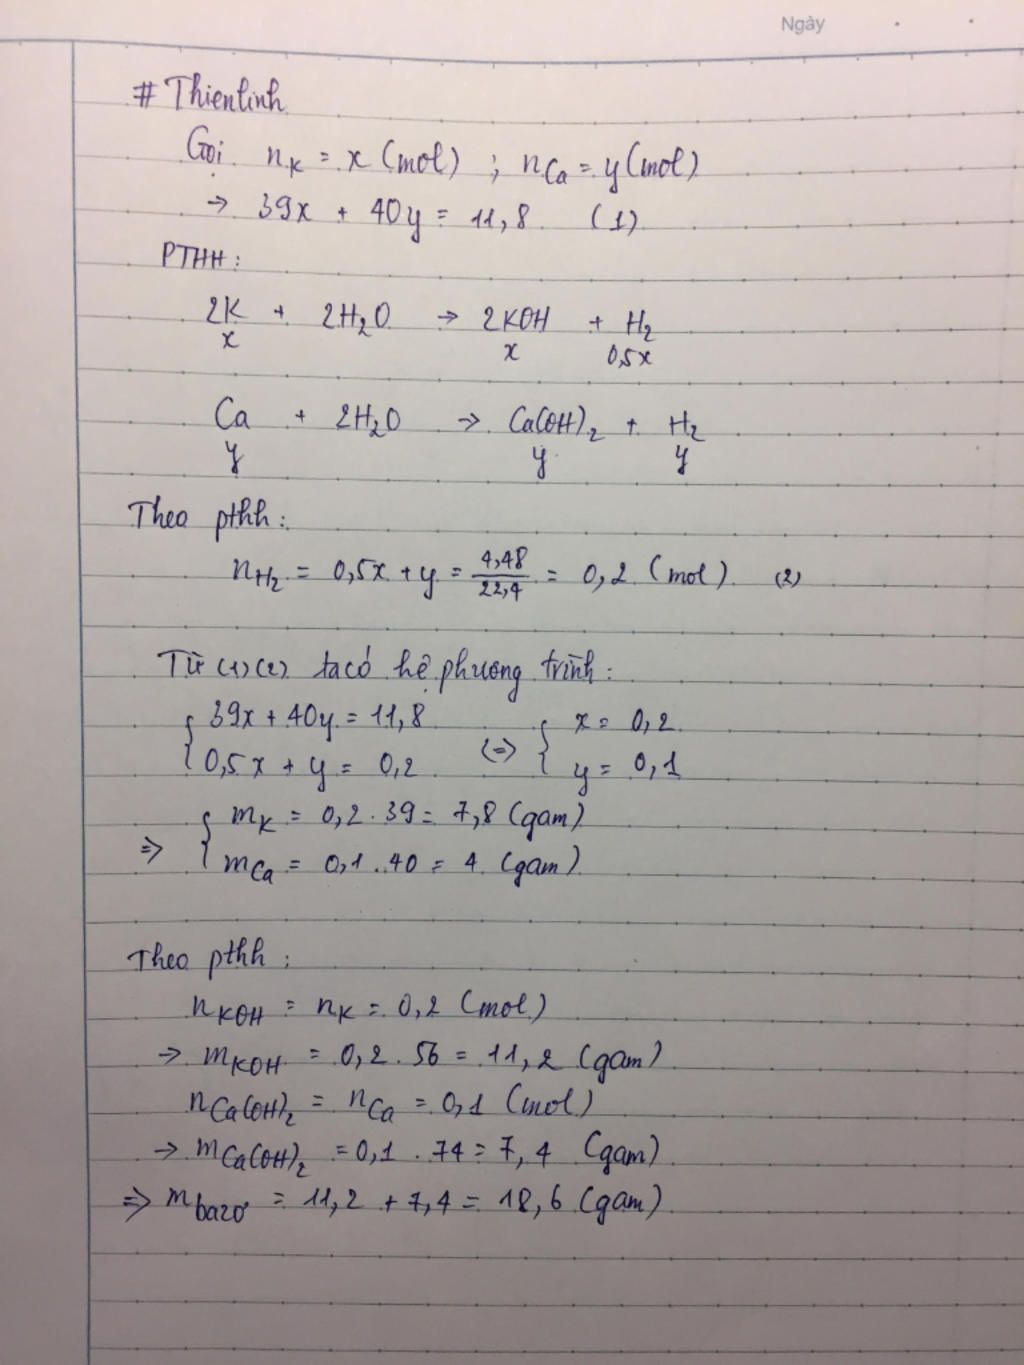 Ngày
# Thienlinh
Gọi nK = x (mol) ; nCa = y (mol)
→ 39x + 40y = 11,8 (1)
PTHH:
2K + 2H₂O → 2KOH + H₂
x x 0,5x
Ca + 2H₂O → Ca(OH)₂ + H₂
y y y
Theo pthh:
nH₂ = 0,5x + y = 4,48/22,4 = 0,2 (mol) (2)
Từ (1)(2) ta có hệ phương trình:
{ 39x + 40y = 11,8 { x = 0,2
{ 0,5x + y = 0,2 (=> { y = 0,1
{ mK = 0,2 . 39 = 7,8 (gam)
=> { mCa = 0,1 . 40 = 4 (gam)
Theo pthh:
nKOH = nK = 0,2 (mol)
→ mKOH = 0,2 . 56 = 11,2 (gam)
nCa(OH)₂ = nCa = 0,1 (mol)
→ mCa(OH)₂ = 0,1 . 74 = 7,4 (gam)
=> mbazơ = 11,2 + 7,4 = 18,6 (gam)